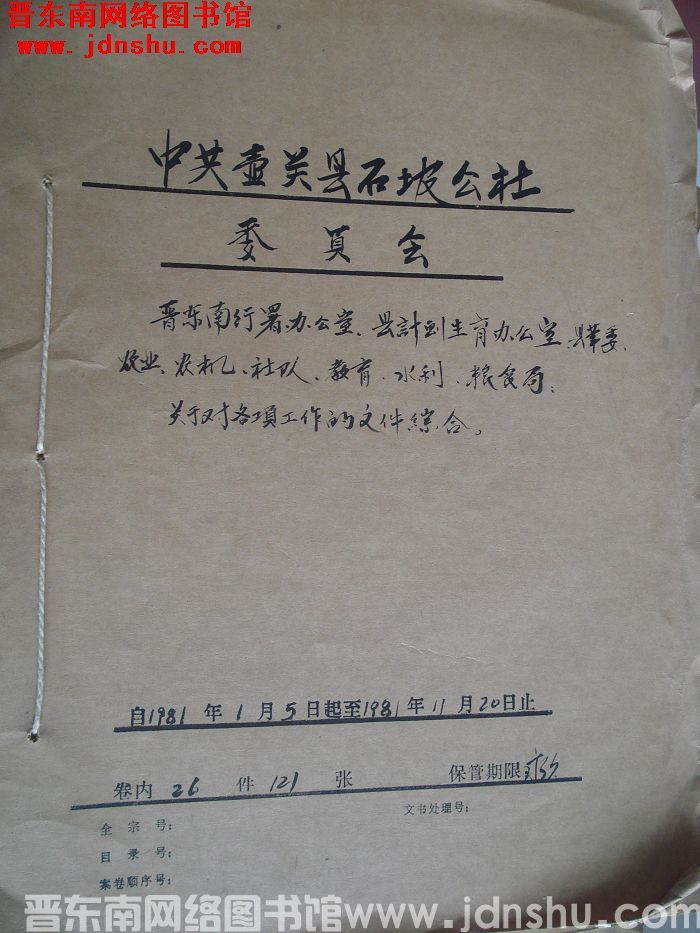 晋东南网络图书馆
www.jdnshu.com
中共壶关县石坡公社
委员会
晋东南行署办公室、县計划生育办公室、县革委、
农业、农机、社队、教育、水利、粮食局、
关于对各項工作的文件綜合。
自1981年1月5日起至1981年11月20日止
卷内26件121张 保管期限永久
文书处理号:
全宗号:
目录号:
案卷顺序号:
晋东南网络图书馆www.jdnshu.com